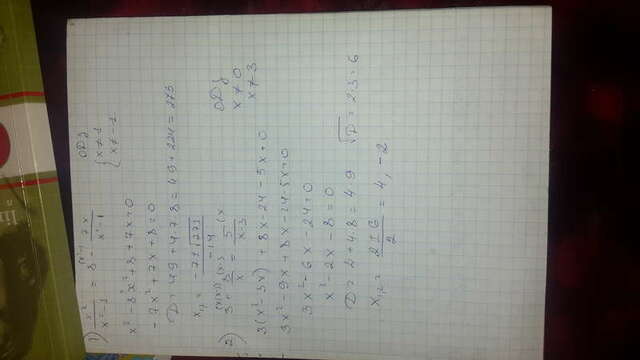 1) x²/(x²-1) = 8 - 7x/(x²-1)
ОДЗ
{ x ≠ 1
x ≠ -1
x² - 8x² + 8 + 7x = 0
-7x² + 7x + 8 = 0
D = 49 + 4·7·8 = 49 + 224 = 273
x₁,₂ = (-7 ± √273)/(-14)
2) 3 + 8/x = 5/(x-3)
ОДЗ
x ≠ 0
x ≠ 3
3(x² - 3x) + 8x - 24 - 5x = 0
3x² - 9x + 8x - 24 - 5x = 0
3x² - 6x - 24 = 0
x² - 2x - 8 = 0
√D = 2·3 = 6
x₁,₂ = (2 ± 6)/2 = 4, -2